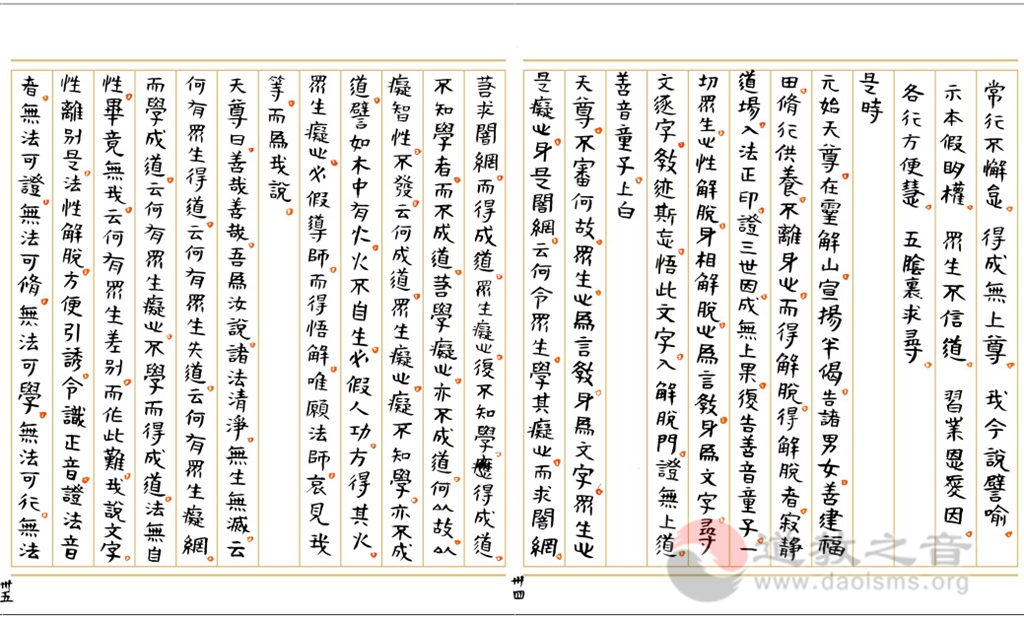 常行不懈怠。得成無上尊。我今說譬喻。
示本假明權。眾生不信道。習業恩愛因。
各行方便慧。五陰裏求尋。
是時
元始天尊。在靈解山。宣揚半偈。告諸男女。善建福
田。脩行供養。不離身心。而得解脫。得解脫者。寂靜
道場。入法正印。證三世因。成無上果。復告善音童子。一
切眾生。心性解脫。身相解脫。心為言教。身為文字。尋
文逐字。教迹斯忘。悟此文字。入解脫門。證無上道。
善音童子。上白
天尊。不審何故。眾生心為言教。身為文字。眾生心
是癡心。身是闇網。云何令眾生。學其癡心。而求闇網。
若求闇網。而得成道。眾生癡心。復不知學。應得成道。
不知學者。而不成道。若學癡心。亦不成道。何以故。以
癡智性。不發。云何成道。眾生癡心。癡不知學。亦不成
道。譬如木中有火。火不自生。必假人功。方得其火。
眾生癡心。必假導師。而得悟解。唯願法師。哀見我
等。而為我說。
天尊曰。善哉善哉。吾為汝說。諸法清淨。無生無滅。云
何有眾生得道。云何有眾生失道。云何有眾生癡網。
而學成道。云何有眾生癡心。不學而得成道。法無自
性。畢竟無我。云何有眾生差別。而作此難。我說文字。
性離別。是法性解脫。方便引誘。令識正音。證法音
者。無法可證。無法可脩。無法可學。無法可行。無法
卅四
卅五
道教之音
www.daoisms.org